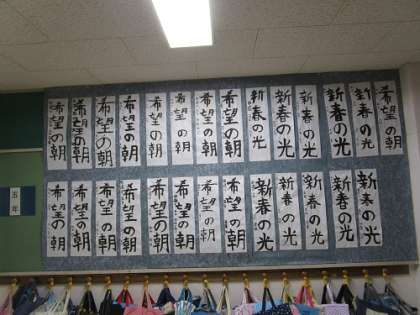 希望の朝
希望の朝
希望の朝
希望の朝
希望の朝
希望の朝
希望の朝
希望の朝
新春の光
新春の光
新春の光
新春の光
新春の光
希望の朝
五年
希望の朝
希望の朝
希望の朝
希望の朝
希望の朝
希望の朝
希望の朝
希望の朝
新春の光
新春の光
新春の光
新春の光
新春の光